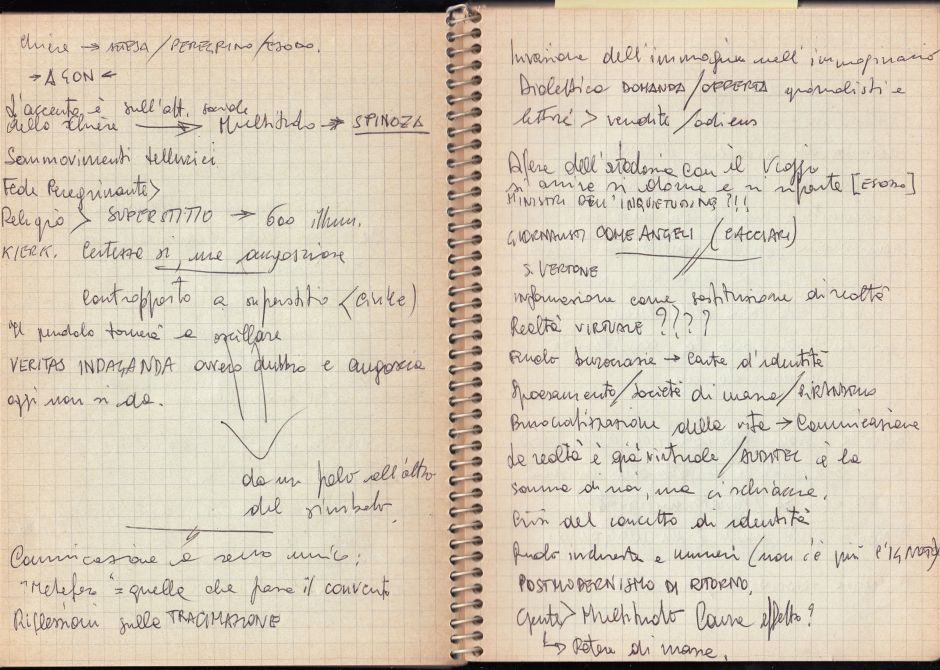 → ATTESA / PEREGRINO / ESODO.
→ AGON ←
L'accento è sull'att. sociale
dello → Multitudo → SPINOZA
Sommovimenti tellurici
Fede Peregrinante >
Religio > SUPERSTITIO → 600 illum.
KIERK. Certezza sì, ma angosciosa
Contrapposto a superstitio < civile)
Il pendolo tornerà a oscillare
VERITAS INDAGANDA ovvero dubbio e angoscia
oggi non si dà.
da un polo all'altro
del simbolo.
Comunicazione a senso unico:
"Metafora" = quella che passa il convento
Riflessioni sulla TRACIMAZIONE
Invasione dell'immagine nell'immaginario
Dialettica DOMANDA / OFFERTA giornalisti e
lettori > vendite / audience
con il viaggio
si arriva si dorme e si riparte [ESODO]
MINISTRI DELL'INQUIETUDINE ?!!
GIORNALISTI COME ANGELI (CACCIARI)
S. VERTONE
informazione come sostituzione di realtà
Realtà VIRTUALE ????
Ruolo burocrazia → Carta d'identità
Spaesamento / società di massa / PIRANDELLO
Burocratizzazione della vita → Comunicazione
La realtà è già virtuale / AUDITEL è la
somma di noi, ma ci schiaccia.
Crisi del concetto di identità
Ruolo industria e numeri (non c'è più l'IGNOTO)
POSTMODERNISMO DI RITORNO.
Gente > Multitudo Causa effetto?
↳ Potere di massa.